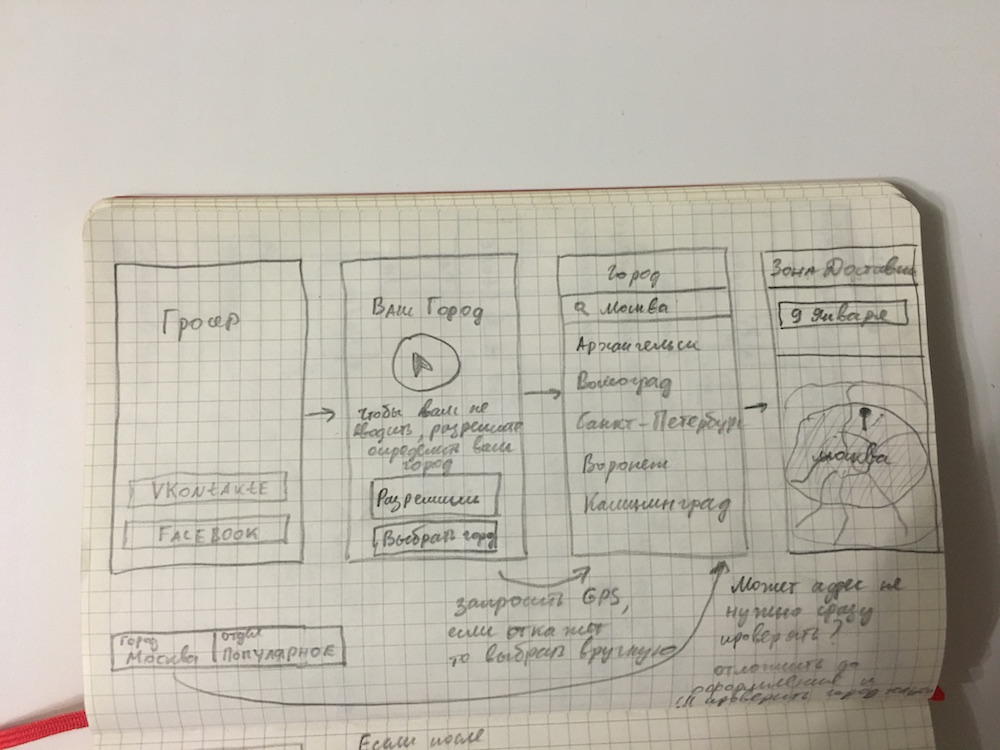 Гросер
VKONTAKTE
FACEBOOK
Ваш Город
Чтобы вам не
вводить, разрешите
определить ваш
город
Разрешить
Выбрать город
Город
Москва
Архангельск
Волгоград
Санкт-Петербург
Воронеж
Калининград
Зона Доставки
9 Января
Москва
запросить GPS,
если откажет
то выбрать вручную
Город
Москва
отдел
ПОПУЛЯРНОЕ
Может адрес не
нужно сразу
проверять?
отложить до
оформления и
проверить город
Если после